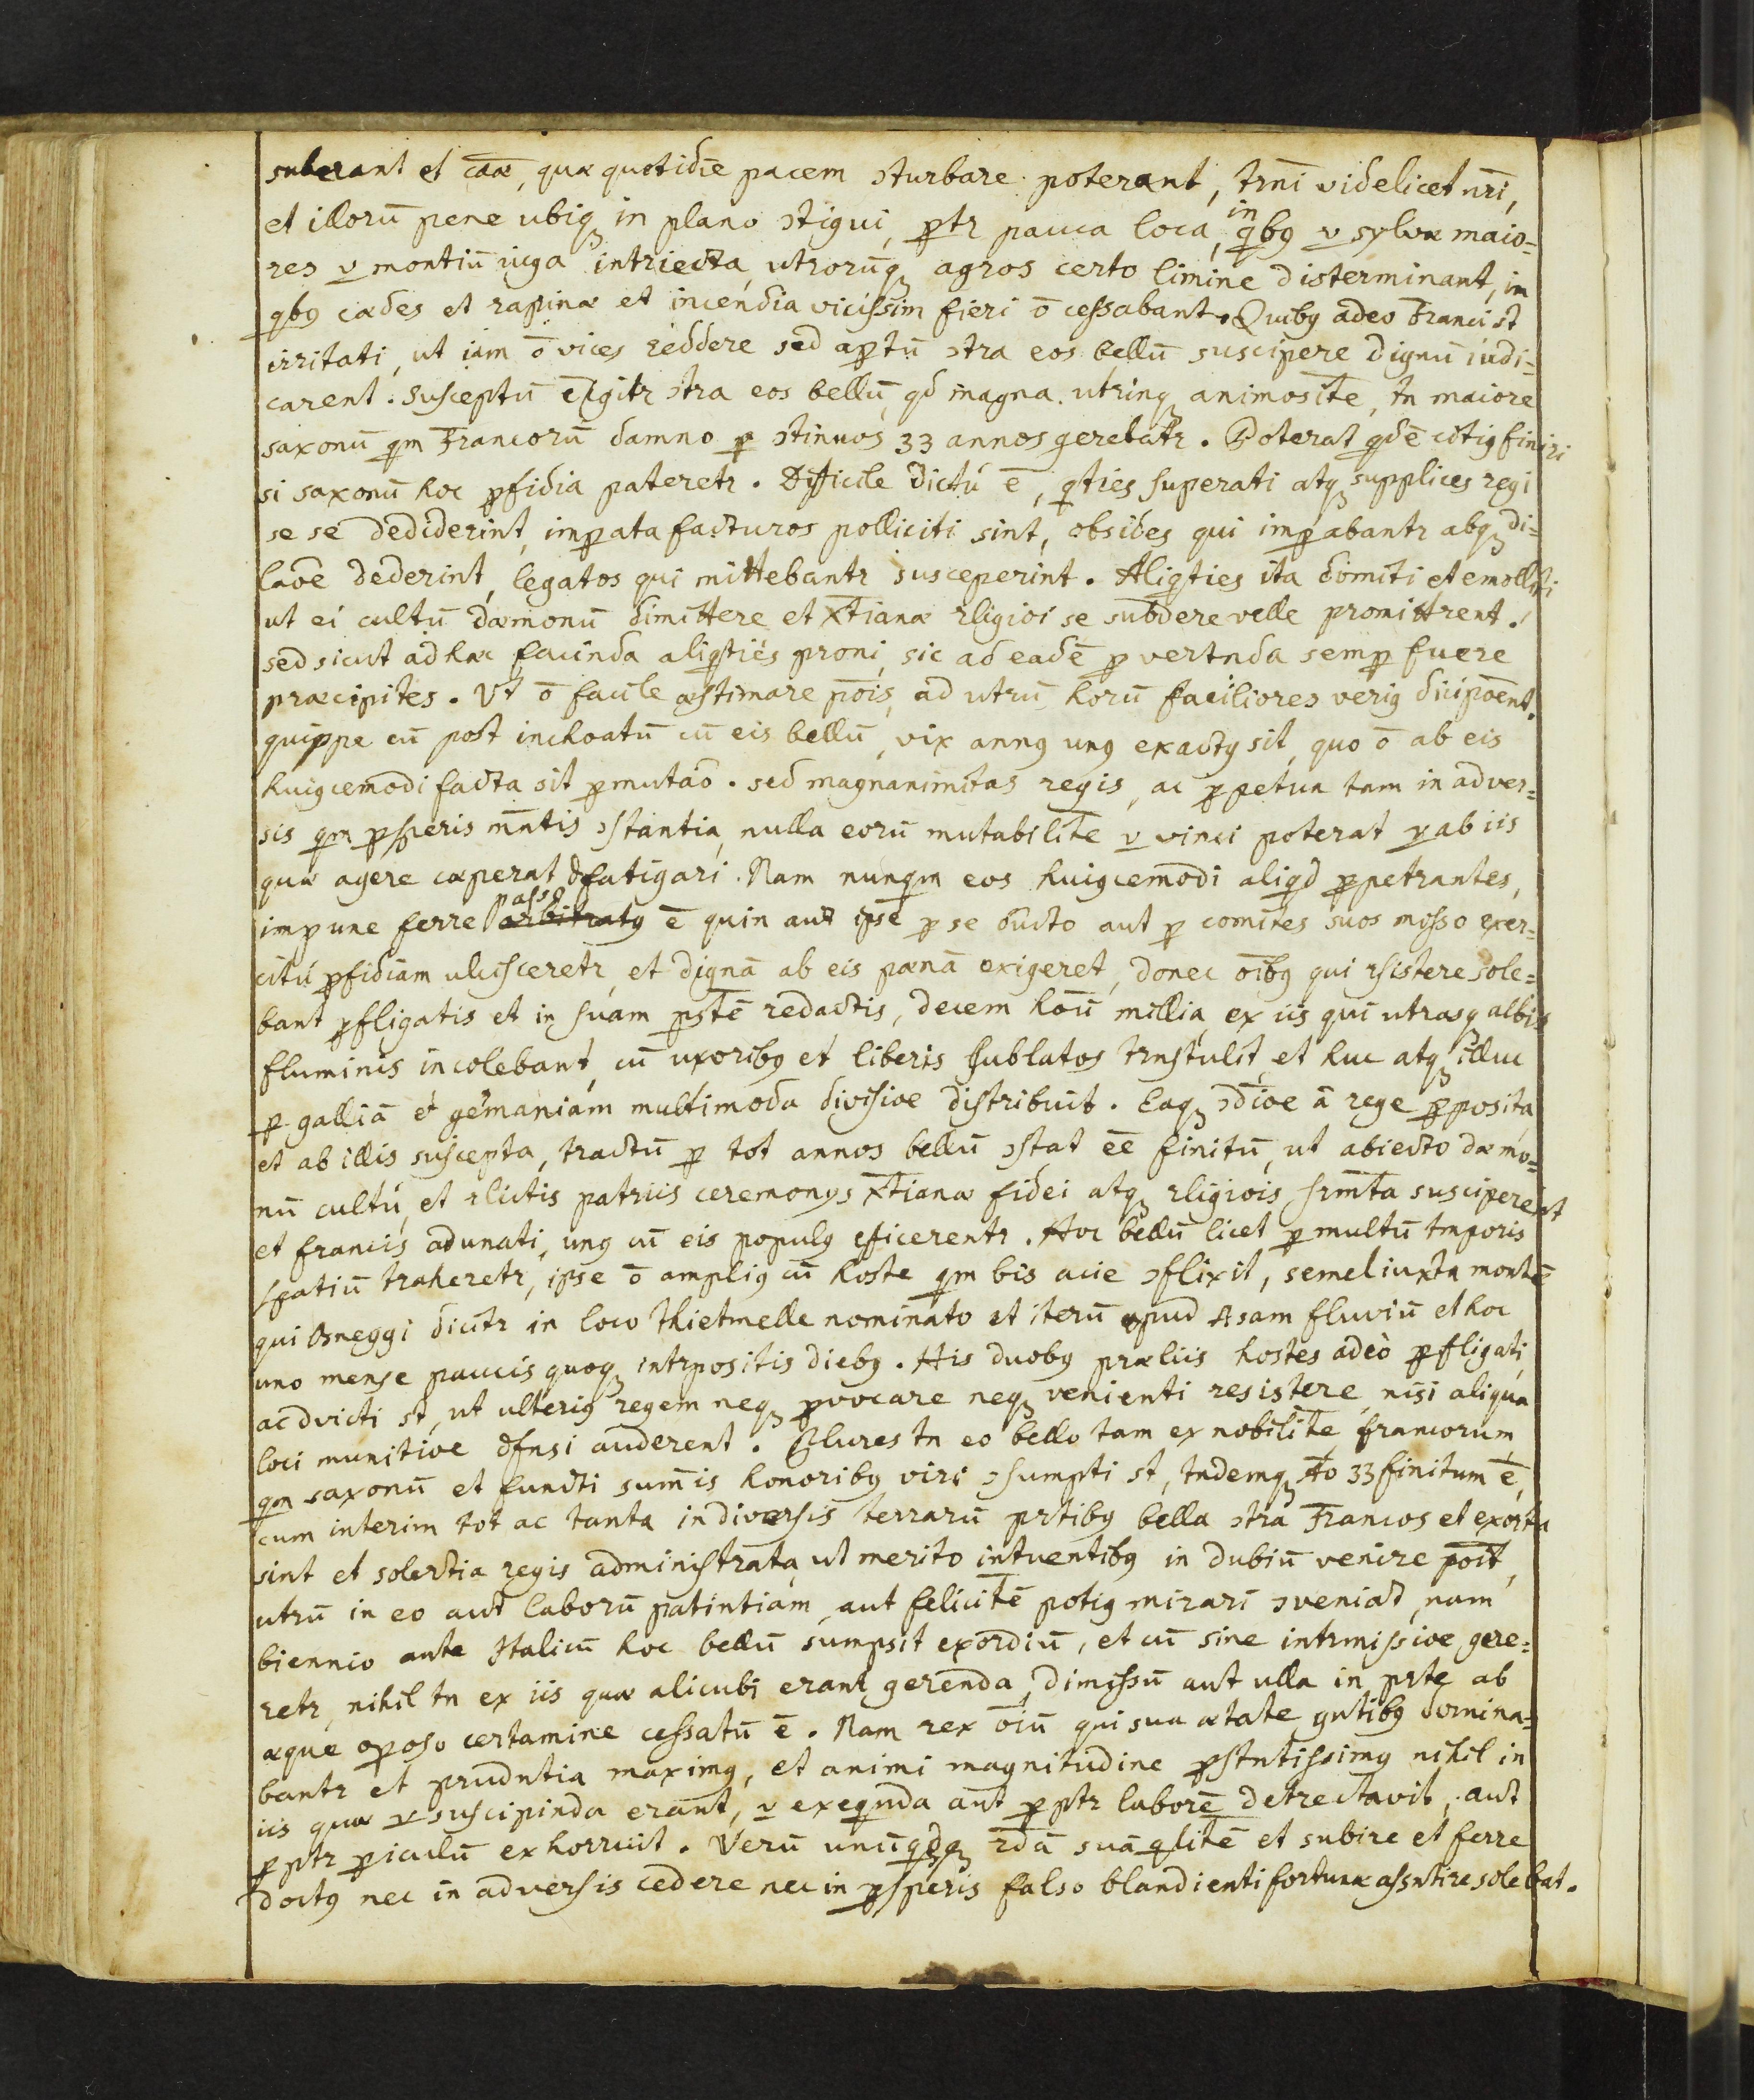 suberant et cāæ, quæ quotidiē pacem ɔturbare poterant, tr̄ni videlicet nr̄i,
et illorū pene ubiqꝫ in plano ɔtigui, p̱tr pauca loca, in qbꝯ v̱ sylvæ maio=
res v̱ montiū iuga intriecta, utrorūqꝫ agros certo limine disterminant, in
qbꝯ cædes et rapinæ et incendia vicissim fieri ō cessabant. Quibꝯ adeo Franci st̄
irritati, ut iam ō vices reddere sed ap̱tū ɔtra eos bellū suscipere dignū iudi=
carent. Susceptū ē igitr ɔtra eos bellū, qd magna utrinqꝫ animosit̄e, tn maiore
saxonū qm Francorū damno p̱ ɔtinuos 33 annos gerebatr. Poterat qdē citiꝯ finiri
si saxonū hoc p̱fidia pateretr. Difficile dictū ē, qties superati atqꝫ supplices regi
se se dediderint, imp̱ata facturos polliciti sint, obsides qui imp̱abantr absqꝫ di=
laōe dederint, legatos qui mittebantr susceperint. Aliqties ita domiti et emolliti
ut ei cultū dæmonū dimittere et x̄tianæ rligioi se subdere velle promittrent.
sed sicut ad hæc facinda aliqties proni, sic ad eadē p̱vertnda semp̱ fuere
præcipites. Ut ō facile æstimare pōis, ad utrū horū faciliores veriꝯ dici pōent,
quippe cū post inchoatū cū eis bellū, vix annꝯ unꝯ exactꝯ sit, quo ō ab eis
huiꝯcemodi facta sit p̱mutāo. sed magnanimitas regis, ac p̱petua tam in adver=
sis qm p̱speris mn̄tis ɔstantia, nulla eorū mutabilit̄e v̱ vinci poterat v̱ ab iis
quæ agere cæperat dfatigari. Nam nunqm eos huiꝯcemodi aliqd p̱petrantes,
impune ferre passꝯ ~~arbitratꝯ~~ ē quin aut ipse p̱ se ducto aut p̱ comites suos misso exer=
citū p̱fidiam ulcisceretr, et dignā ab eis pænā exigeret, donec oībꝯ qui rsistere sole=
bant p̱fligatis et in suam p̱stē redactis, decem hōū millia, ex iis qui utrasqꝫ albis
fluminis incolebant, cū uxoribꝯ et liberis sublatos trnstulit, et huc atqꝫ illuc
p̱ galliā et germaniam multimoda divisioe distribuit. Eaqꝫ ɔdīoe ā rege p̱posita,
et ab illis suscepta, tractū p̱ tot annos bellū ɔstat ēe finitū, ut abiecto dæmo=
nū cultū, et rlictis patriis ceremonys x̄tianæ fidei atqꝫ rligiois srm̄ta susciperent
et francis adunati, unꝯ cū eis populꝯ efficerentr. Hoc bellū licet p̱ multū tmporis
spatiū traheretr, ipse ō ampliꝯ cū hoste qm bis acie ɔflixit, semel iuxta montē
qui Osneggi dicitr in loco Thietmelle nominato et iterū apud Asam fluviū et hoc
uno mense paucis quoqꝫ intrpositis diebꝯ. His duobꝯ præliis hostes adeò p̱fligati,
ac dvicti st̄, ut ulteriꝯ regem neqꝫ p̱vocare neqꝫ venienti resistere, nisi aliqua
loci munitioe dfnsi auderent. Plures tn eo bello tam ex nobilit̄e francorum,
qm saxonū et functi sum̄is honoribꝯ viri ɔsumpti st̄, tndemqꝫ Āo 33 finitum ē,
cum interim tot ac tanta in diversis terrarū prtibꝯ bella ɔtra Francos et exorta
sint et solertia regis administrata, ut merito intuentibꝯ in dubiū venire pōit,
utrū in eo aut laborū patintiam, aut felicitē potiꝯ mirari ɔveniat, nam
biennio ante Italicū hoc bellū sumpsit exordiū, et cū sine intrmissioe gere=
retr, nihil tn ex iis quæ alicubi erant gerenda, dimissū aut ulla in prte ab
æque op̱oso certamine cessatū ē. Nam rex oīū qui sua ætate gntibꝯ domina=
bantr et prudntia maximꝯ, et animi magnitudine p̱stntissimꝯ nihil in
iis quæ v̱ suscipinda erant, v̱ exequnda aut p̱ptr laborē detrectavit, aut
p̱ptr p̱iculū exhorruit. Verū unūqdqꝫ rdā suā qlitē et subire et ferre
doctꝯ nec in adversis cedere nec in p̱speris falso blandienti fortunæ assntire solebat.